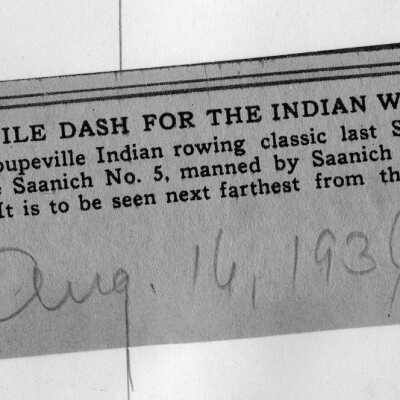 ILE DASH FOR THE INDIAN W
oupeville Indian rowing classic last S
Saanich No. 5, manned by Saanich
It is to be seen next farthest from th
Aug. 16, 193